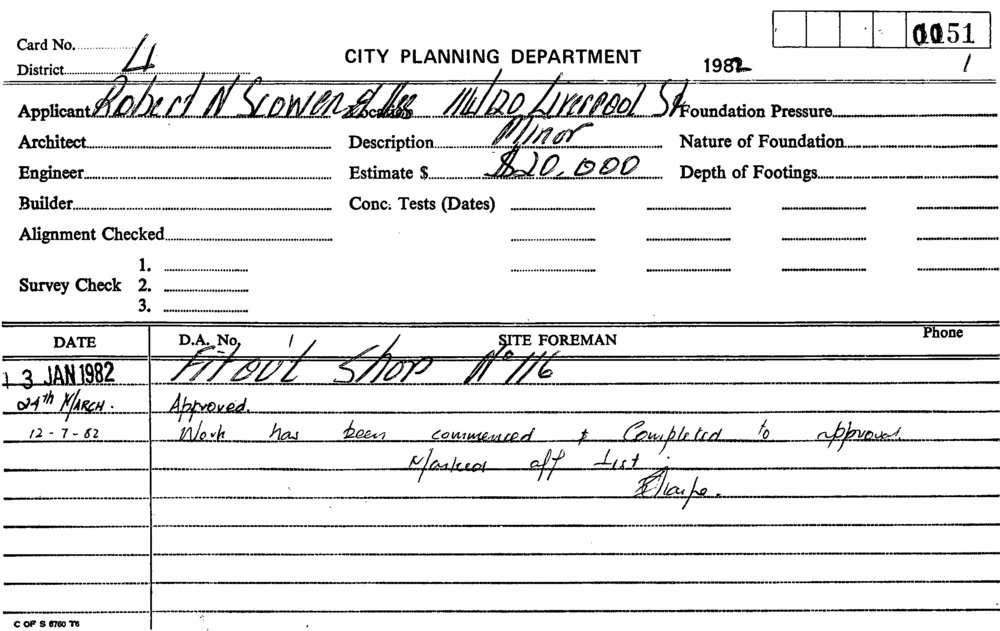 0051
Card No.
CITY PLANNING DEPARTMENT
1982
District 4
Applicant Robert N Scowen Location 114/120 Liverpool St Foundation Pressure
Architect Description Minor Nature of Foundation
Engineer Estimate $ $20,000 Depth of Footings
Builder Conc. Tests (Dates)
Alignment Checked
1.
Survey Check 2.
3.
DATE D.A. No. SITE FOREMAN Phone
13 JAN 1982 Fitout Shop No 116
24th MARCH. Approved.
12-7-82 Work has been commenced & Completed to approval.
Marked off List.
C OF S 6760 T6